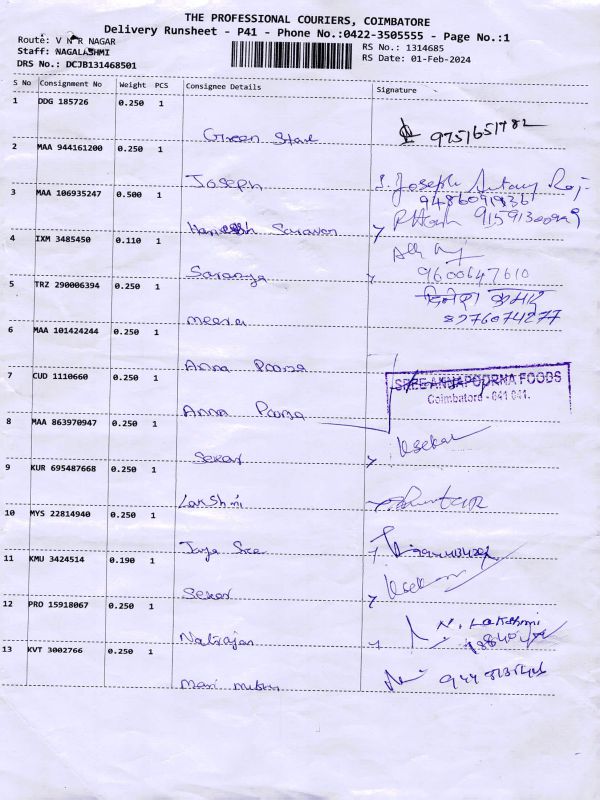 THE PROFESSIONAL COURIERS, COIMBATORE
Delivery Runsheet - P41 - Phone No.:0422-3505555 - Page No.:1
Route: V N R NAGAR
Staff: NAGALAKSHMI
DRS No.: DCJB131468501
RS No.: 1314685
RS Date: 01-Feb-2024
S No Consignment No Weight PCS Consignee Details Signature
1 DDG 185726 0.250 1
Green Star 9751651782
2 MAA 944161200 0.250 1
Joseph S. Joseph Antony Raj
9486091836
3 MAA 106935247 0.500 1
Saravan
4 IXM 3485450 0.110 1
Saranya 9600647610
5 TRZ 290006394 0.250 1
meera 8976074277
6 MAA 101424244 0.250 1
Anna Poorna
7 CUD 1110660 0.250 1
SREE ANNAPOORNA FOODS
Coimbatore - 641 041.
Anna Poorna
8 MAA 863970947 0.250 1
Sekar Ksekar
9 KUR 695487668 0.250 1
Lakshmi
10 MYS 22814940 0.250 1
Jaya Sree
11 KMU 3424514 0.190 1
Sekar Ksekar
12 PRO 15918067 0.250 1
Natrajan N. Lakshmi
13 KVT 3002766 0.250 1
Mari